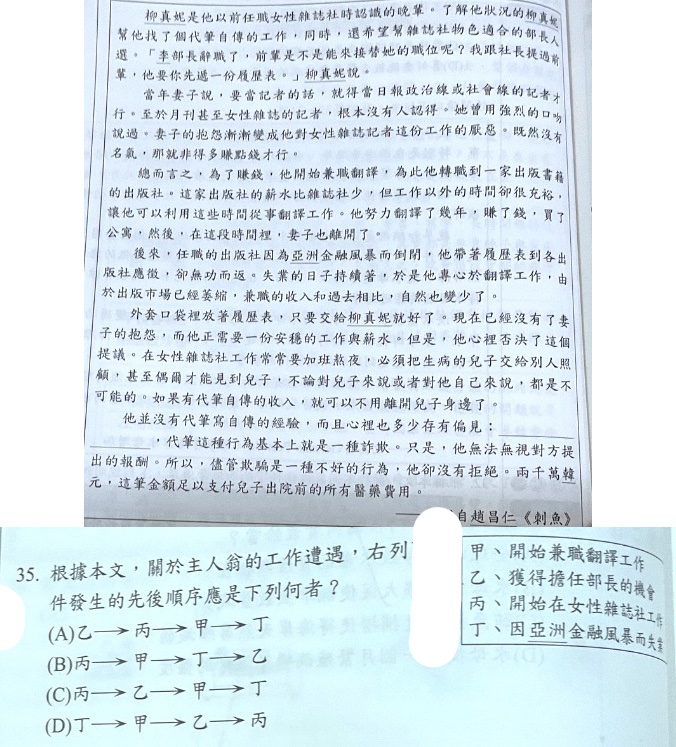 柳真妮是他以前任職女性雜誌社時認識的晚輩。了解他狀況的柳真妮
幫他找了個代筆自傳的工作,同時,還希望幫雜誌社物色適合的部長人
選。「李部長辭職了,前輩是不是能來接替她的職位呢?我跟社長提過前
輩,他要你先遞一份履歷表。」柳真妮說。
當年妻子說,要當記者的話,就得當日報政治線或社會線的記者才
行。至於月刊甚至女性雜誌的記者,根本沒有人認得。她曾用強烈的口吻
說過。妻子的抱怨漸漸變成他對女性雜誌記者這份工作的厭惡。既然沒有
名氣,那就非得多賺點錢才行。
總而言之,為了賺錢,他開始兼職翻譯,為此他轉職到一家出版書籍
的出版社。這家出版社的薪水比雜誌社少,但工作以外的時間卻很充裕,
讓他可以利用這些時間從事翻譯工作。他努力翻譯了幾年,賺了錢,買了
公寓,然後,在這段時間裡,妻子也離開了。
後來,任職的出版社因為亞洲金融風暴而倒閉,他帶著履歷表到各出
版社應徵,卻無功而返。失業的日子持續著,於是他專心於翻譯工作,由
於出版市場已經萎縮,兼職的收入和過去相比,自然也變少了。
外套口袋裡放著履歷表,只要交給柳真妮就好了。現在已經沒有了妻
子的抱怨,而他正需要一份安穩的工作與薪水。但是,他心裡否決了這個
提議。在女性雜誌社工作常常要加班熬夜,必須把生病的兒子交給別人照
顧,甚至偶爾才能見到兒子,不論對兒子來說或者對他自己來說,都是不
可能的。如果有代筆自傳的收入,就可以不用離開兒子身邊了。
他並沒有代筆寫自傳的經驗,而且心裡也多少存有偏見:
,代筆這種行為基本上就是一種詐欺。只是,他無法無視對方提
出的報酬。所以,儘管欺騙是一種不好的行為,他卻沒有拒絕。兩千萬韓
元,這筆金額足以支付兒子出院前的所有醫藥費用。
自趙昌仁《刺魚》
35. 根據本文,關於主人翁的工作遭遇,右列
件發生的先後順序應是下列何者?
(A)乙→丙→甲→丁
(B)丙→甲→丁→乙
(C)丙→乙→甲→丁
(D)丁→甲→乙→丙
甲、開始兼職翻譯工作
乙、獲得擔任部長的機會
丙、開始在女性雜誌社工作
丁、因亞洲金融風暴而失業